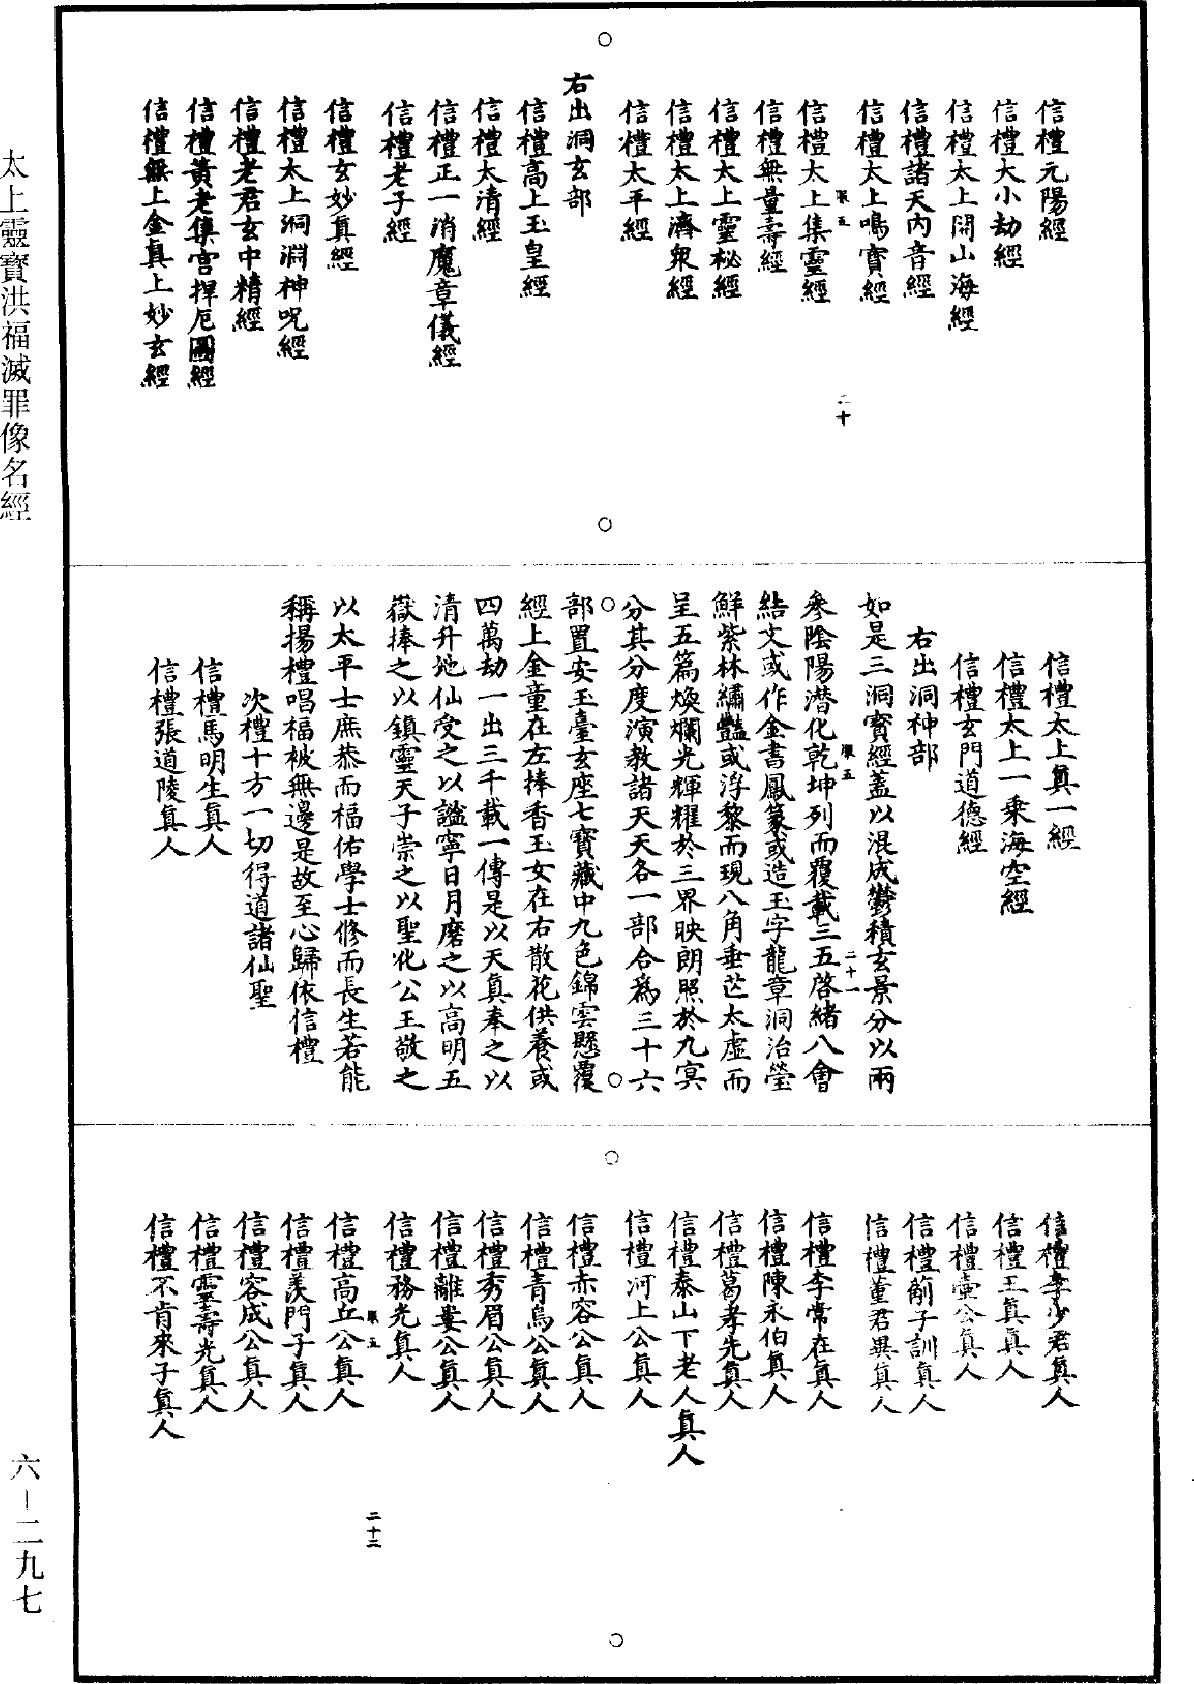 信禮元陽經
信禮大小劫經
信禮太上開山海經
信禮諸天內音經
信禮太上鳴寶經
信禮太上集靈經
信禮無量壽經
信禮太上靈秘經
信禮太上濟衆經
信禮太平經
右出洞玄部
信禮高上玉皇經
信禮太清經
信禮正一消魔章儀經
信禮老子經
信禮玄妙真經
信禮太上洞淵神呪經
信禮老君玄中精經
信禮黃老集宮捍厄圖經
信禮無上金真上妙玄經
二十
信禮太上真一經
信禮太上一乘海空經
信禮玄門道德經
右出洞神部
如是三洞寶經蓋以混成鬱積玄景分以兩
參陰陽潛化乾坤列而覆載三五啓緒八會
結文或作金書鳳篆或造玉字龍章洞治瑩
鮮紫林繡豔或浮黎而現八角垂芒太虛而
呈五篇煥爛光輝耀於三界映朗照於九冥
分其分度演教諸天天各一部合爲三十六
部置安玉臺玄座七寶藏中九色錦雲懸覆
經上金童在左捧香玉女在右散花供養或
四萬劫一出三千載一傳是以天真奉之以
清升地仙受之以謐寧日月磨之以高明五
嶽捧之以鎮靈天子崇之以聖化公王敬之
以太平士庶恭而福佑學士修而長生若能
稱揚禮唱福被無邊是故至心歸依信禮
次禮十方一切得道諸仙聖
信禮馬明生真人
信禮張道陵真人
二十一
信禮李少君真人
信禮王真真人
信禮壺公真人
信禮薊子訓真人
信禮董君異真人
信禮李常在真人
信禮陳永伯真人
信禮葛孝先真人
信禮泰山下老人真人
信禮河上公真人
信禮赤容公真人
信禮青烏公真人
信禮秀眉公真人
信禮離婁公真人
信禮務光真人
信禮高丘公真人
信禮羨門子真人
信禮容成公真人
信禮靈壽光真人
信禮不肯來子真人
二十二
太上靈寶洪福滅罪像名經
六－二九七